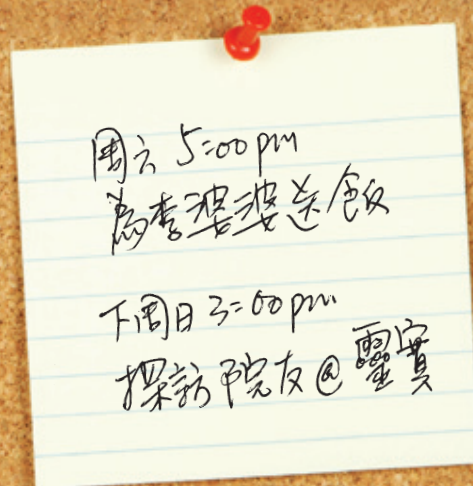 周六 5:00 pm
為李婆婆送飯
下周日 3:00 pm
探訪院友@靈實